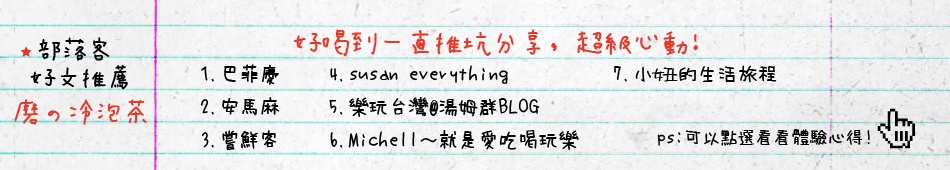 ★部落客
好文推薦
磨の冷泡茶
好喝到一直推坑分享，超級心動!
1. 巴菲慶
2. 安馬麻
3. 嘗鮮客
4. susan everything
5. 樂玩台灣@湯姆群BLOG
6. Michell～就是愛吃喝玩樂
7. 小妞的生活旅程
ps:可以點選看看體驗心得!